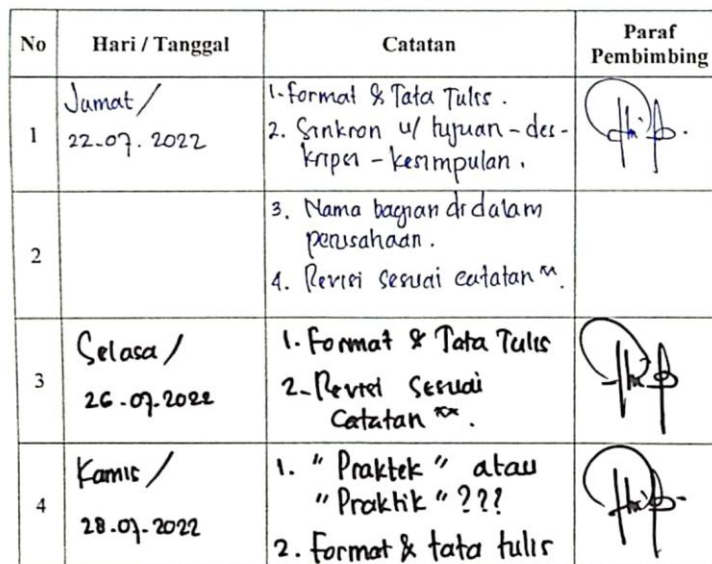 No Hari / Tanggal Catatan Paraf Pembimbing
1 Jumat / 22-07-2022
1. Format & Tata Tulis.
2. Sinkron u/ tujuan - des-
kripsi - kesimpulan.
2
3. Nama bagian di dalam
perusahaan.
4. Revisi sesuai catatan
3 Selasa / 26-07-2022
1. Format & Tata Tulis
2. Revisi Sesuai
Catatan
4 Kamis / 28-07-2022
1. "Praktek" atau
"Praktik" ???
2. Format & tata tulis